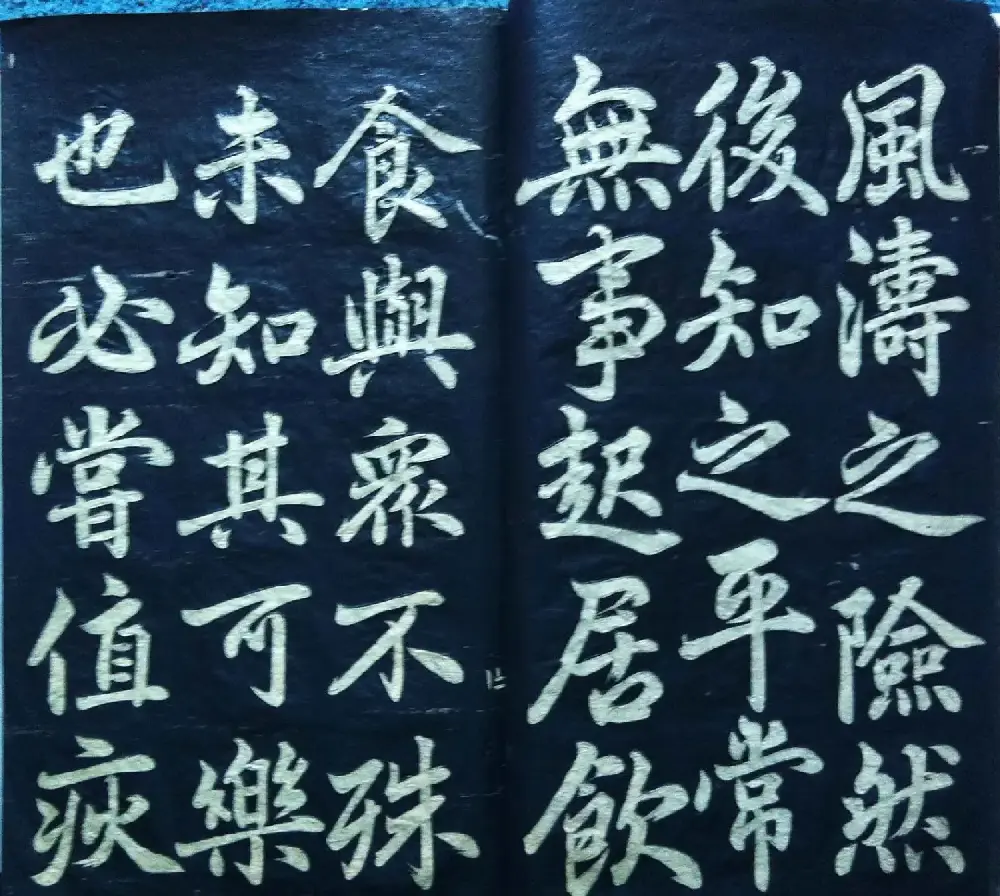 風濤之險然
後知之平常
無事起居飲
食與眾不殊
未知其可樂
也必嘗值疾